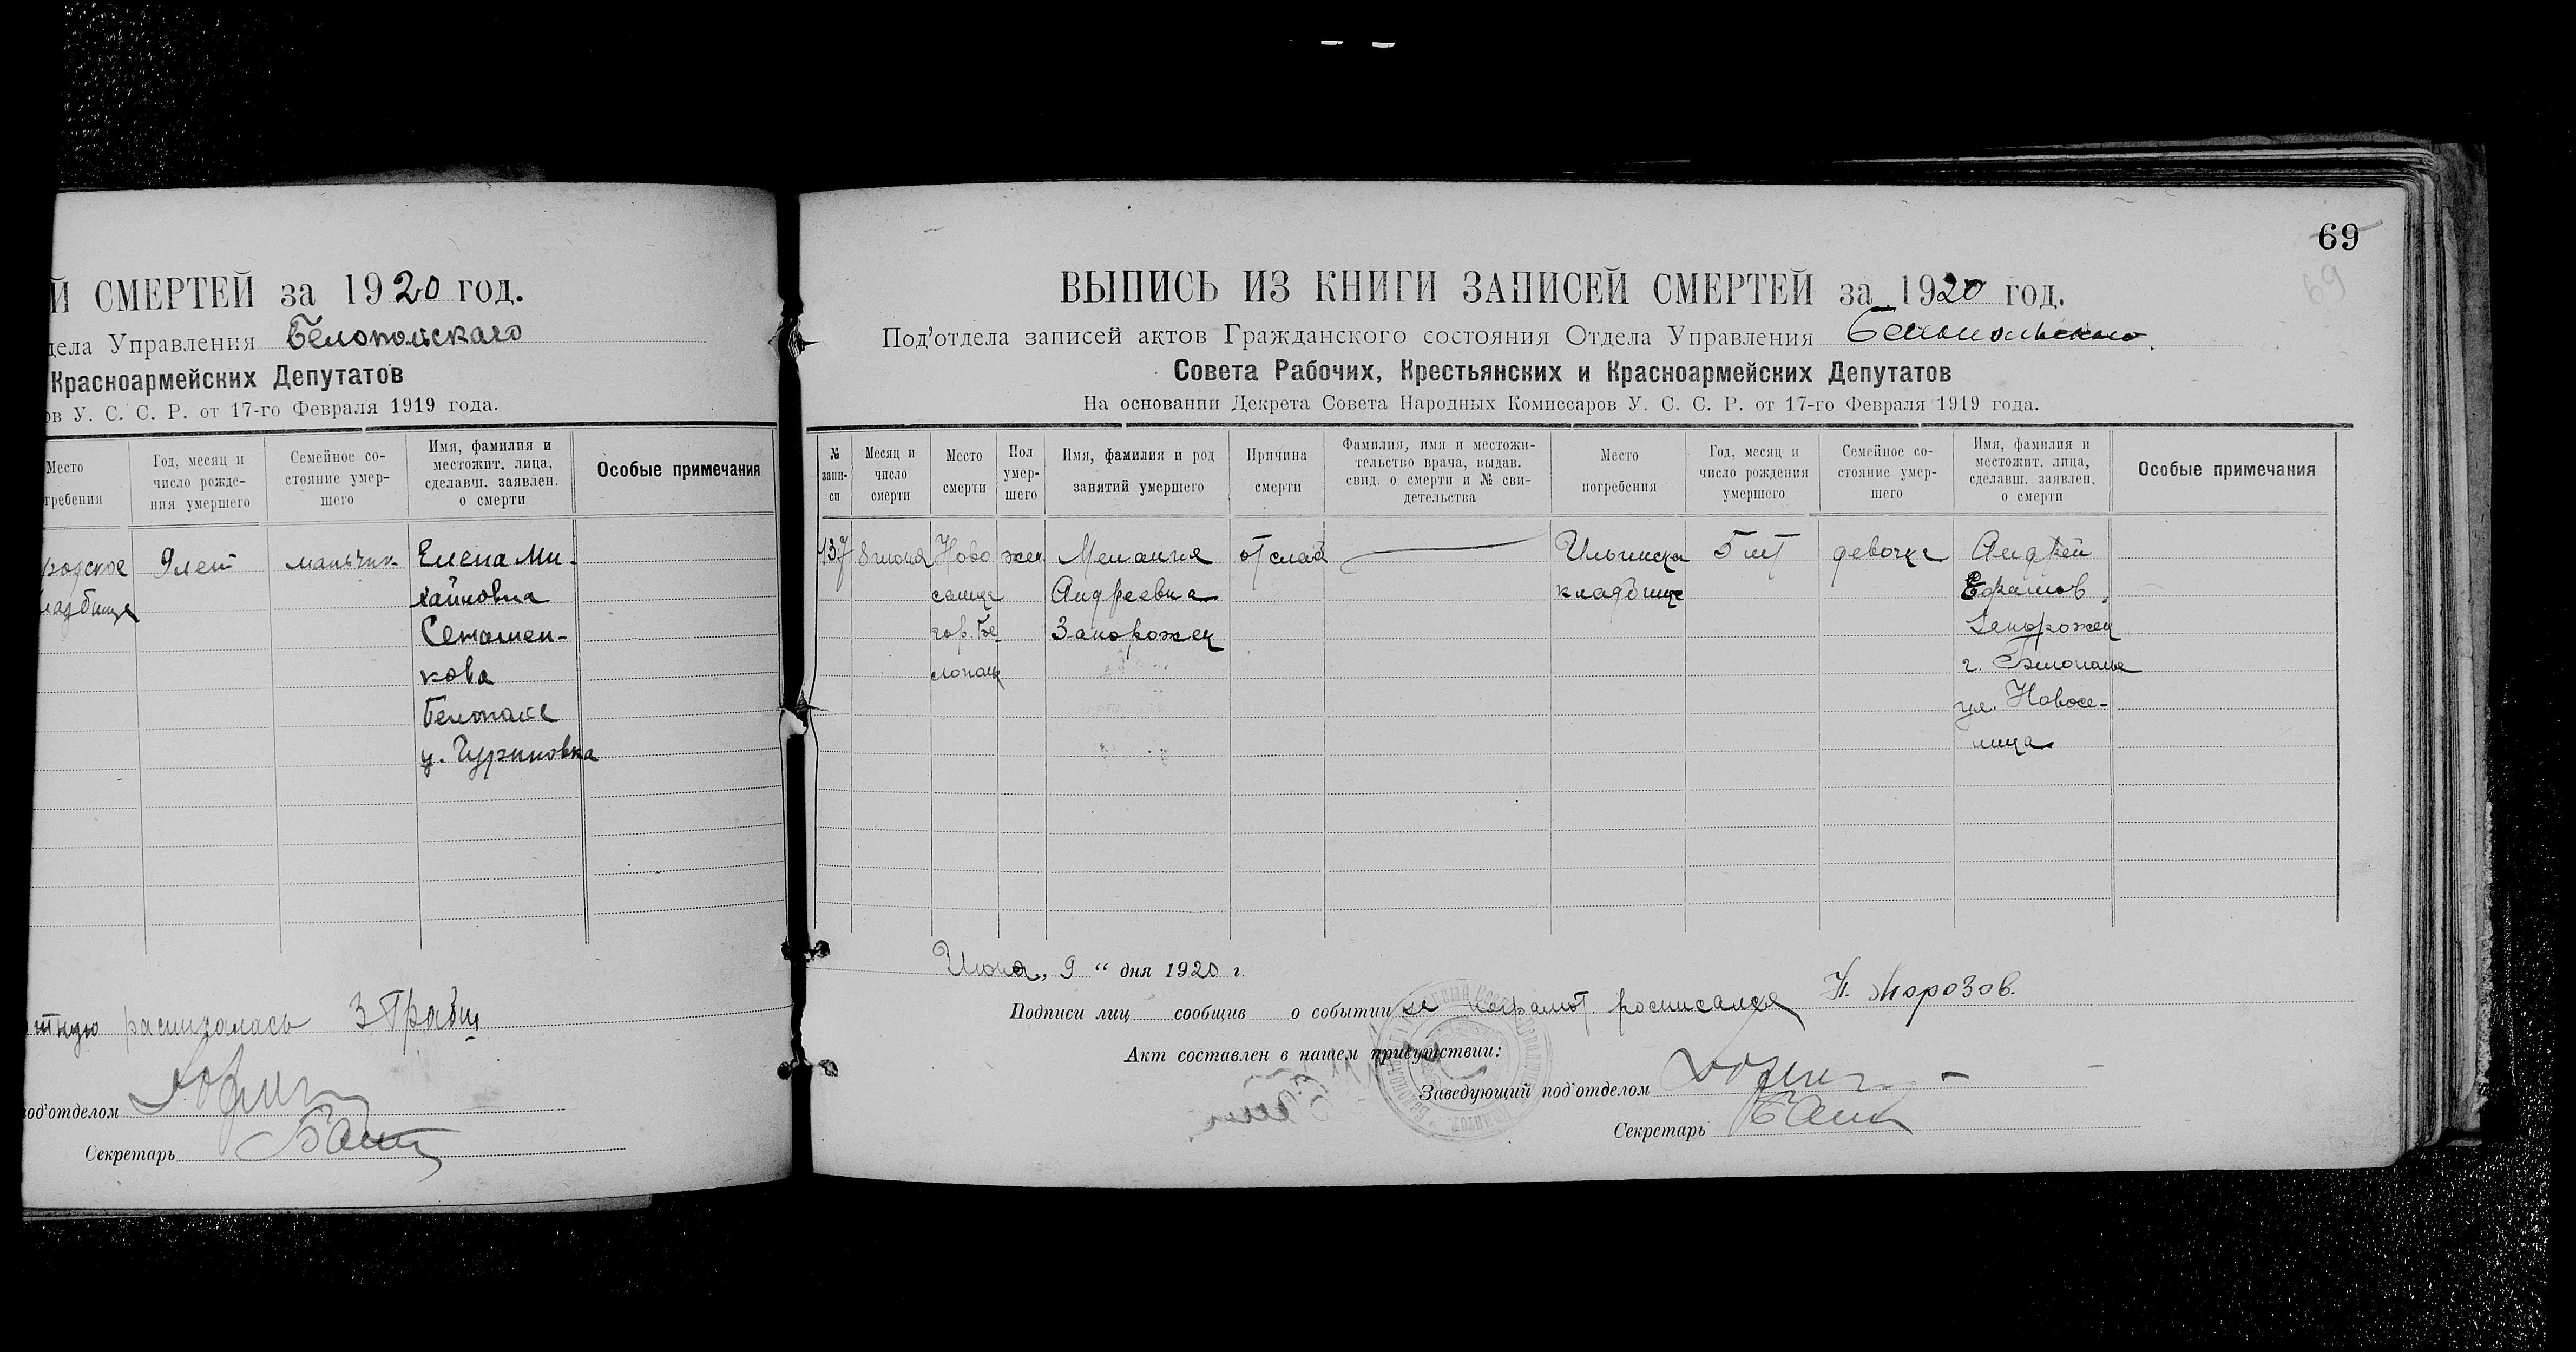 Й СМЕРТЕЙ за 1920 год.
дела Управления Белопольскаго
Красноармейских Депутатов
ов У. С. С. Р. от 17-го Февраля 1919 года.
Место
гребения
Год, месяц и
число рожде-
ния умершего
Семейное со-
стояние умер-
шего
Имя, фамилия и
местожит. лица,
сделавш. заявлен.
о смерти
Особые примечания
9 лет
мальчик
Елена Ми-
хайловна
кова
Белополье
расписалась
под'отделом
Секретарь
69
69
ВЫПИСЬ ИЗ КНИГИ ЗАПИСЕЙ СМЕРТЕЙ за 1920 год.
Под'отдела записей актов Гражданского состояния Отдела Управления Белопольскаго
Совета Рабочих, Крестьянских и Красноармейских Депутатов
На основании Декрета Совета Народных Комиссаров У. С. С. Р. от 17-го Февраля 1919 года.
№
запи-
си
Месяц и
число
смерти
Место
смерти
Пол
умер-
шего
Имя, фамилия и род
занятий умершего
Причина
смерти
Фамилия, имя и местожи-
тельство врача, выдав.
свид. о смерти и № сви-
детельства
Место
погребения
Год, месяц и
число рождения
умершего
Семейное со-
стояние умер-
шего
Имя, фамилия и
местожит. лица,
сделавш. заявлен.
о смерти
Особые примечания
137
8 июня
Ново
селица
гор. Бе-
лополь
жен.
Мелания
Андреевна
Запорожец
от слаб
Ильинска
кладбище
5 лет
девочка
Андрей
Ефимов.
Запорожец
г. Белополье
ул. Новосе-
лица
Июня „ 9 “ дня 1920 г.
Подписи лиц сообщив о событии неграмот. росписался Н. Морозов.
Акт составлен в нашем присутствии:
Заведующий под'отделом
Секретарь